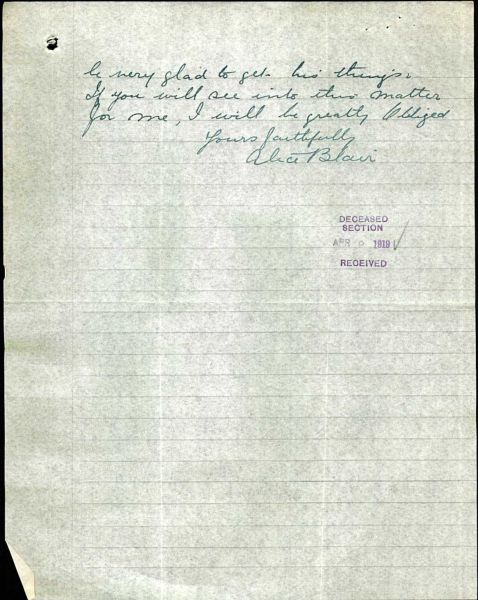 be very glad to get his things.
If you will see into this matter
for me, I will be greatly Obliged
Yours faithfully
Alice Blair
DECEASED
SECTION
APR 1919
RECEIVED